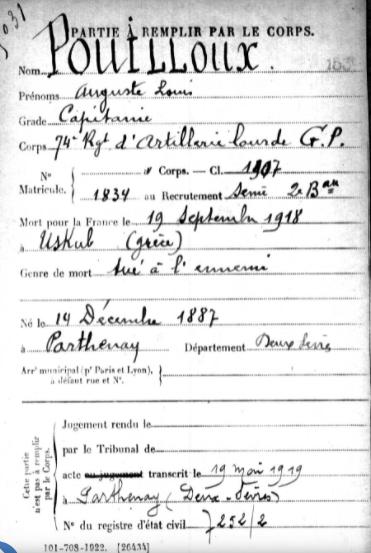 PARTIE À REMPLIR PAR LE CORPS.
Nom POUILLOUX.
Prénoms Auguste Louis
Grade Capitaine
Corps 74e Rgt d'Artillerie lourde G.P.
N° Matricule. { au Corps. — Cl. 1907
1834 au Recrutement Seine 2e Bau
Mort pour la France le 19 Septembre 1918
à Uskub (Grèce)
Genre de mort tué à l'ennemi
Né le 14 Décembre 1887
à Parthenay Département Deux Sèvres
Arrt municipal (pr Paris et Lyon), à défaut rue et N°. }
Cette partie n'est pas à remplir par le Corps.
Jugement rendu le
par le Tribunal de
acte ou jugement transcrit le 19 mai 1919
à Parthenay (Deux-Sèvres)
N° du registre d'état civil 7252/2
101-708-1922. [26434]